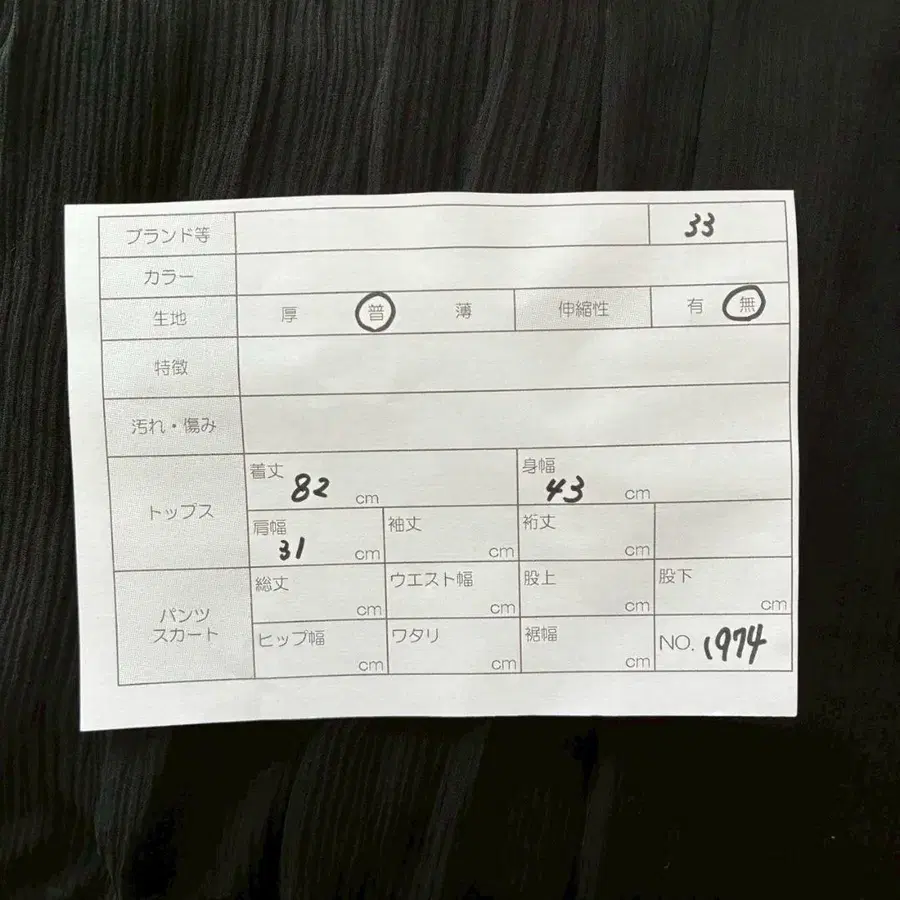 ブランド等 33
カラー
生地 厚 普 薄 伸縮性 有 無
特徴
汚れ・傷み
トップス
着丈 82 cm 身幅 43 cm
肩幅 31 cm 袖丈 cm 裄丈 cm
パンツ
スカート
総丈 cm ウエスト幅 cm 股上 cm 股下 cm
ヒップ幅 cm ワタリ cm 裾幅 cm NO. 1974